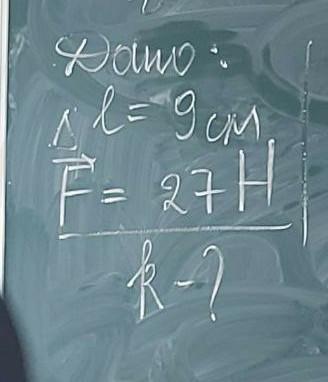 Дано:
Δl = 9 см
F⃗ = 27 Н
k - ?